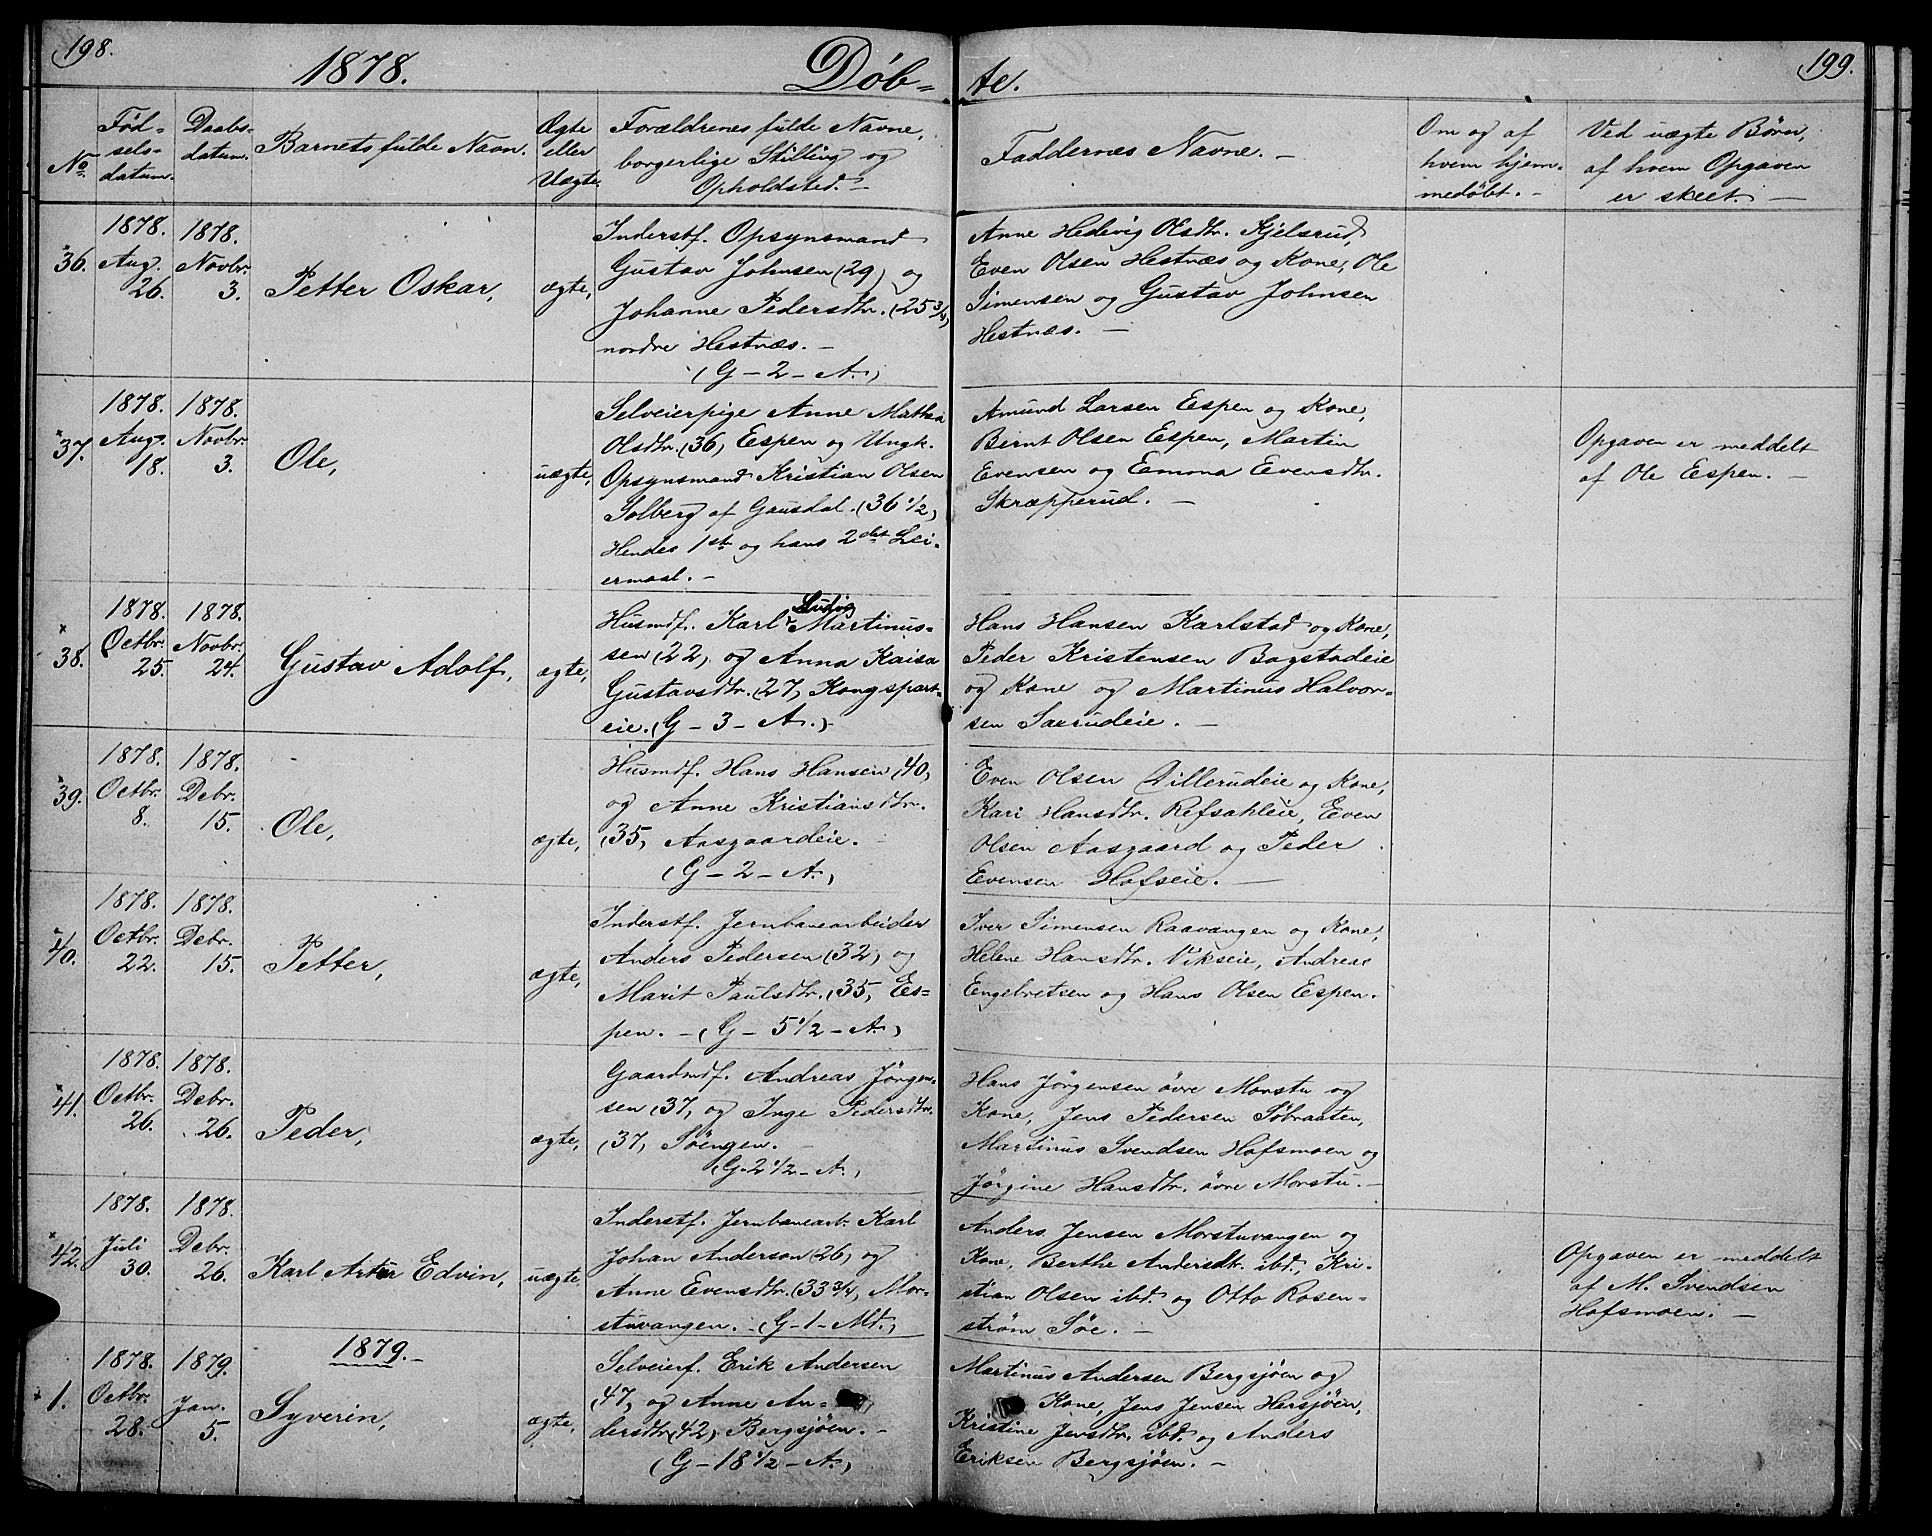 198.
1878.
Døb-
te.
199.
No.
Fød-
sels-
datum.
Daabs-
datum.
Barnets fulde Navn.
Ægte
eller
Uægte.
Forældrenes fulde Navne,
borgerlige Stilling og
Opholdsted. -
Faddernes Navne. -
Om og af
hvem hjem-
medøbt. -
Ved uægte Børn,
af hvem Opgaven
er skeet. -
36.
1878.
Aug.
26.
1878.
Novbr.
3.
Petter Oskar,
ægte,
Inderstf. Opsynsmand
Gustav Johnsen (29) og
Johanne Pedersdtr. (25 3/4)
nordre Hestnæs. -
(G - 2 - A.)
Anne Hedevig Olsdtr. Kjelsrud,
Even Olsen Hestnæs og Kone, Ole
Simensen og Gustav Johnsen
Hestnæs. -
37.
1878.
Aug.
18.
1878.
Novbr.
3.
Ole,
uægte,
Selveierpige Anne Mathea
Olsdtr. (36) Espen og Ungk.
Opsynsmand Kristian Olsen
Solberg af Gausdal. (36 1/2)
Hendes 1ste og hans 2det Lei-
ermaal. -
Amund Larsen Espen og Kone,
Bernt Olsen Espen, Martin
Evensen og Emma Evensdtr.
Skræpperud. -
Opgaven er meddelt
af Ole Espen. -
38.
1878.
Octbr.
25.
1878.
Novbr.
24.
Gustav Adolf,
ægte,
Husmdf. Karl Ludvig Martinus-
sen (22) og Anna Kaisa
Gustavsdtr. (27) Kongspart-
eie. (G - 3 - A.)
Hans Hansen Karlstad og Kone,
Peder Kristensen Bagstadeie
og Kone og Martinus Halvor-
sen Saxrudeie. -
39.
1878.
Octbr.
8.
1878.
Debr.
15.
Ole,
ægte,
Husmdf. Hans Hansen (40)
og Anne Kristiansdtr.
(35) Aasgaardeie.
(G - 2 - A.)
Even Olsen Dillerudeie og Kone,
Kari Hansdtr. Refsahleie, Even
Olsen Aasgaard og Peder
Evensen Hofseie. -
40.
1878.
Octbr.
22.
1878.
Debr.
15.
Petter,
ægte,
Inderstf. Jernbanearbeider
Anders Pedersen (32) og
Marit Paulsdtr. (35) Es-
pen. - (G - 5 1/2 - A.)
Iver Simensen Raavangen og Kone,
Helene Hansdtr. Vikseie, Andreas
Engebretsen og Hans Olsen Espen.
41.
1878.
Octbr.
26.
1878.
Debr.
26.
Peder,
ægte,
Gaardmdf. Andreas Jørgen-
sen (37) og Inge Pedersdtr.
(37) Søengen. -
(G - 2 1/2 - A.)
Hans Jørgensen øvre Morstu og
Kone, Jens Pedersen Søbraaten,
Martinus Svendsen Hofsmoen og
Jørgine Hansdtr. øvre Morstu. -
42.
1878.
Juli
30.
1878.
Debr.
26.
Karl Artur Edvin,
uægte,
Inderstf. Jernbanearb. Karl
Johan Anderson (26) og
Anne Evensdtr. (33 3/4) Mor-
stuvangen. - (G - 1 - Md.)
Anders Jensen Morstuvangen og
Kone, Berthe Andersdtr. ibd., Kri-
stian Olsen ibd. og Otto Rosen-
strøm Søe. -
Opgaven er meddelt
af M. Svendsen
Hofsmoen. -
1879. -
1.
1878.
Octbr.
28.
1879.
Jan.
5.
Syverin,
ægte,
Selveierf. Erik Andersen
(47) og Anne An-
dersdtr. (42) Bergsjøen. -
(G - 18 1/2 - A.)
Martinus Andersen Bergsjøen og
Kone, Jens Jensen Hersjøen,
Kristine Jensdtr. ibd. og Anders
Eriksen Bergsjøen. -